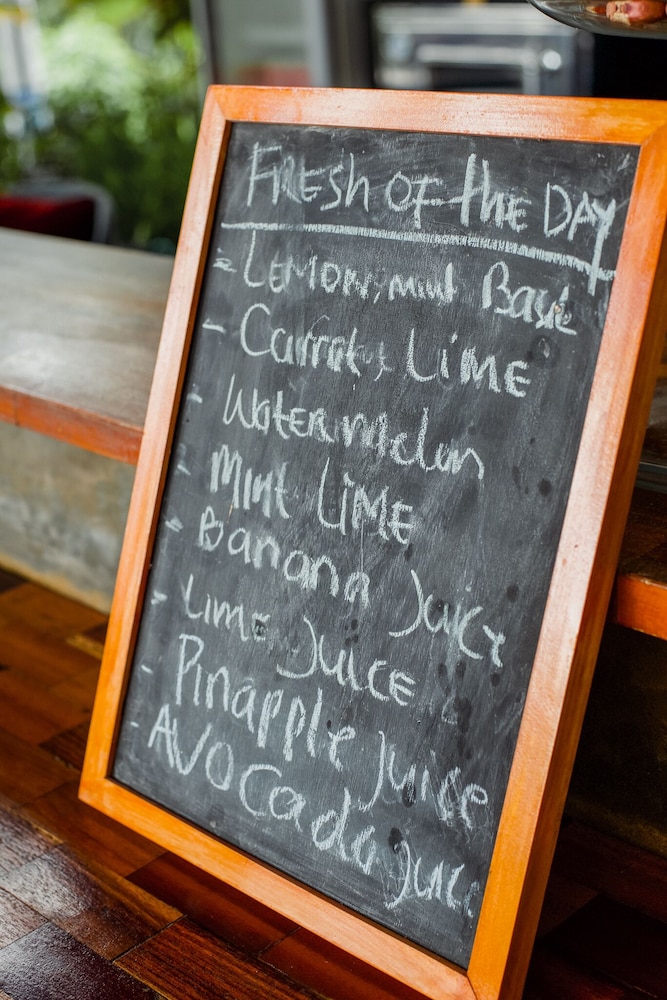 FRESh OF the DAY
- LEMON, mint Basil
- Carrot, LIME
- Watermelon
- Mint LIME
- Banana Juice
- Lime Juice
- Pinapple Juice
- AVOCado Juice